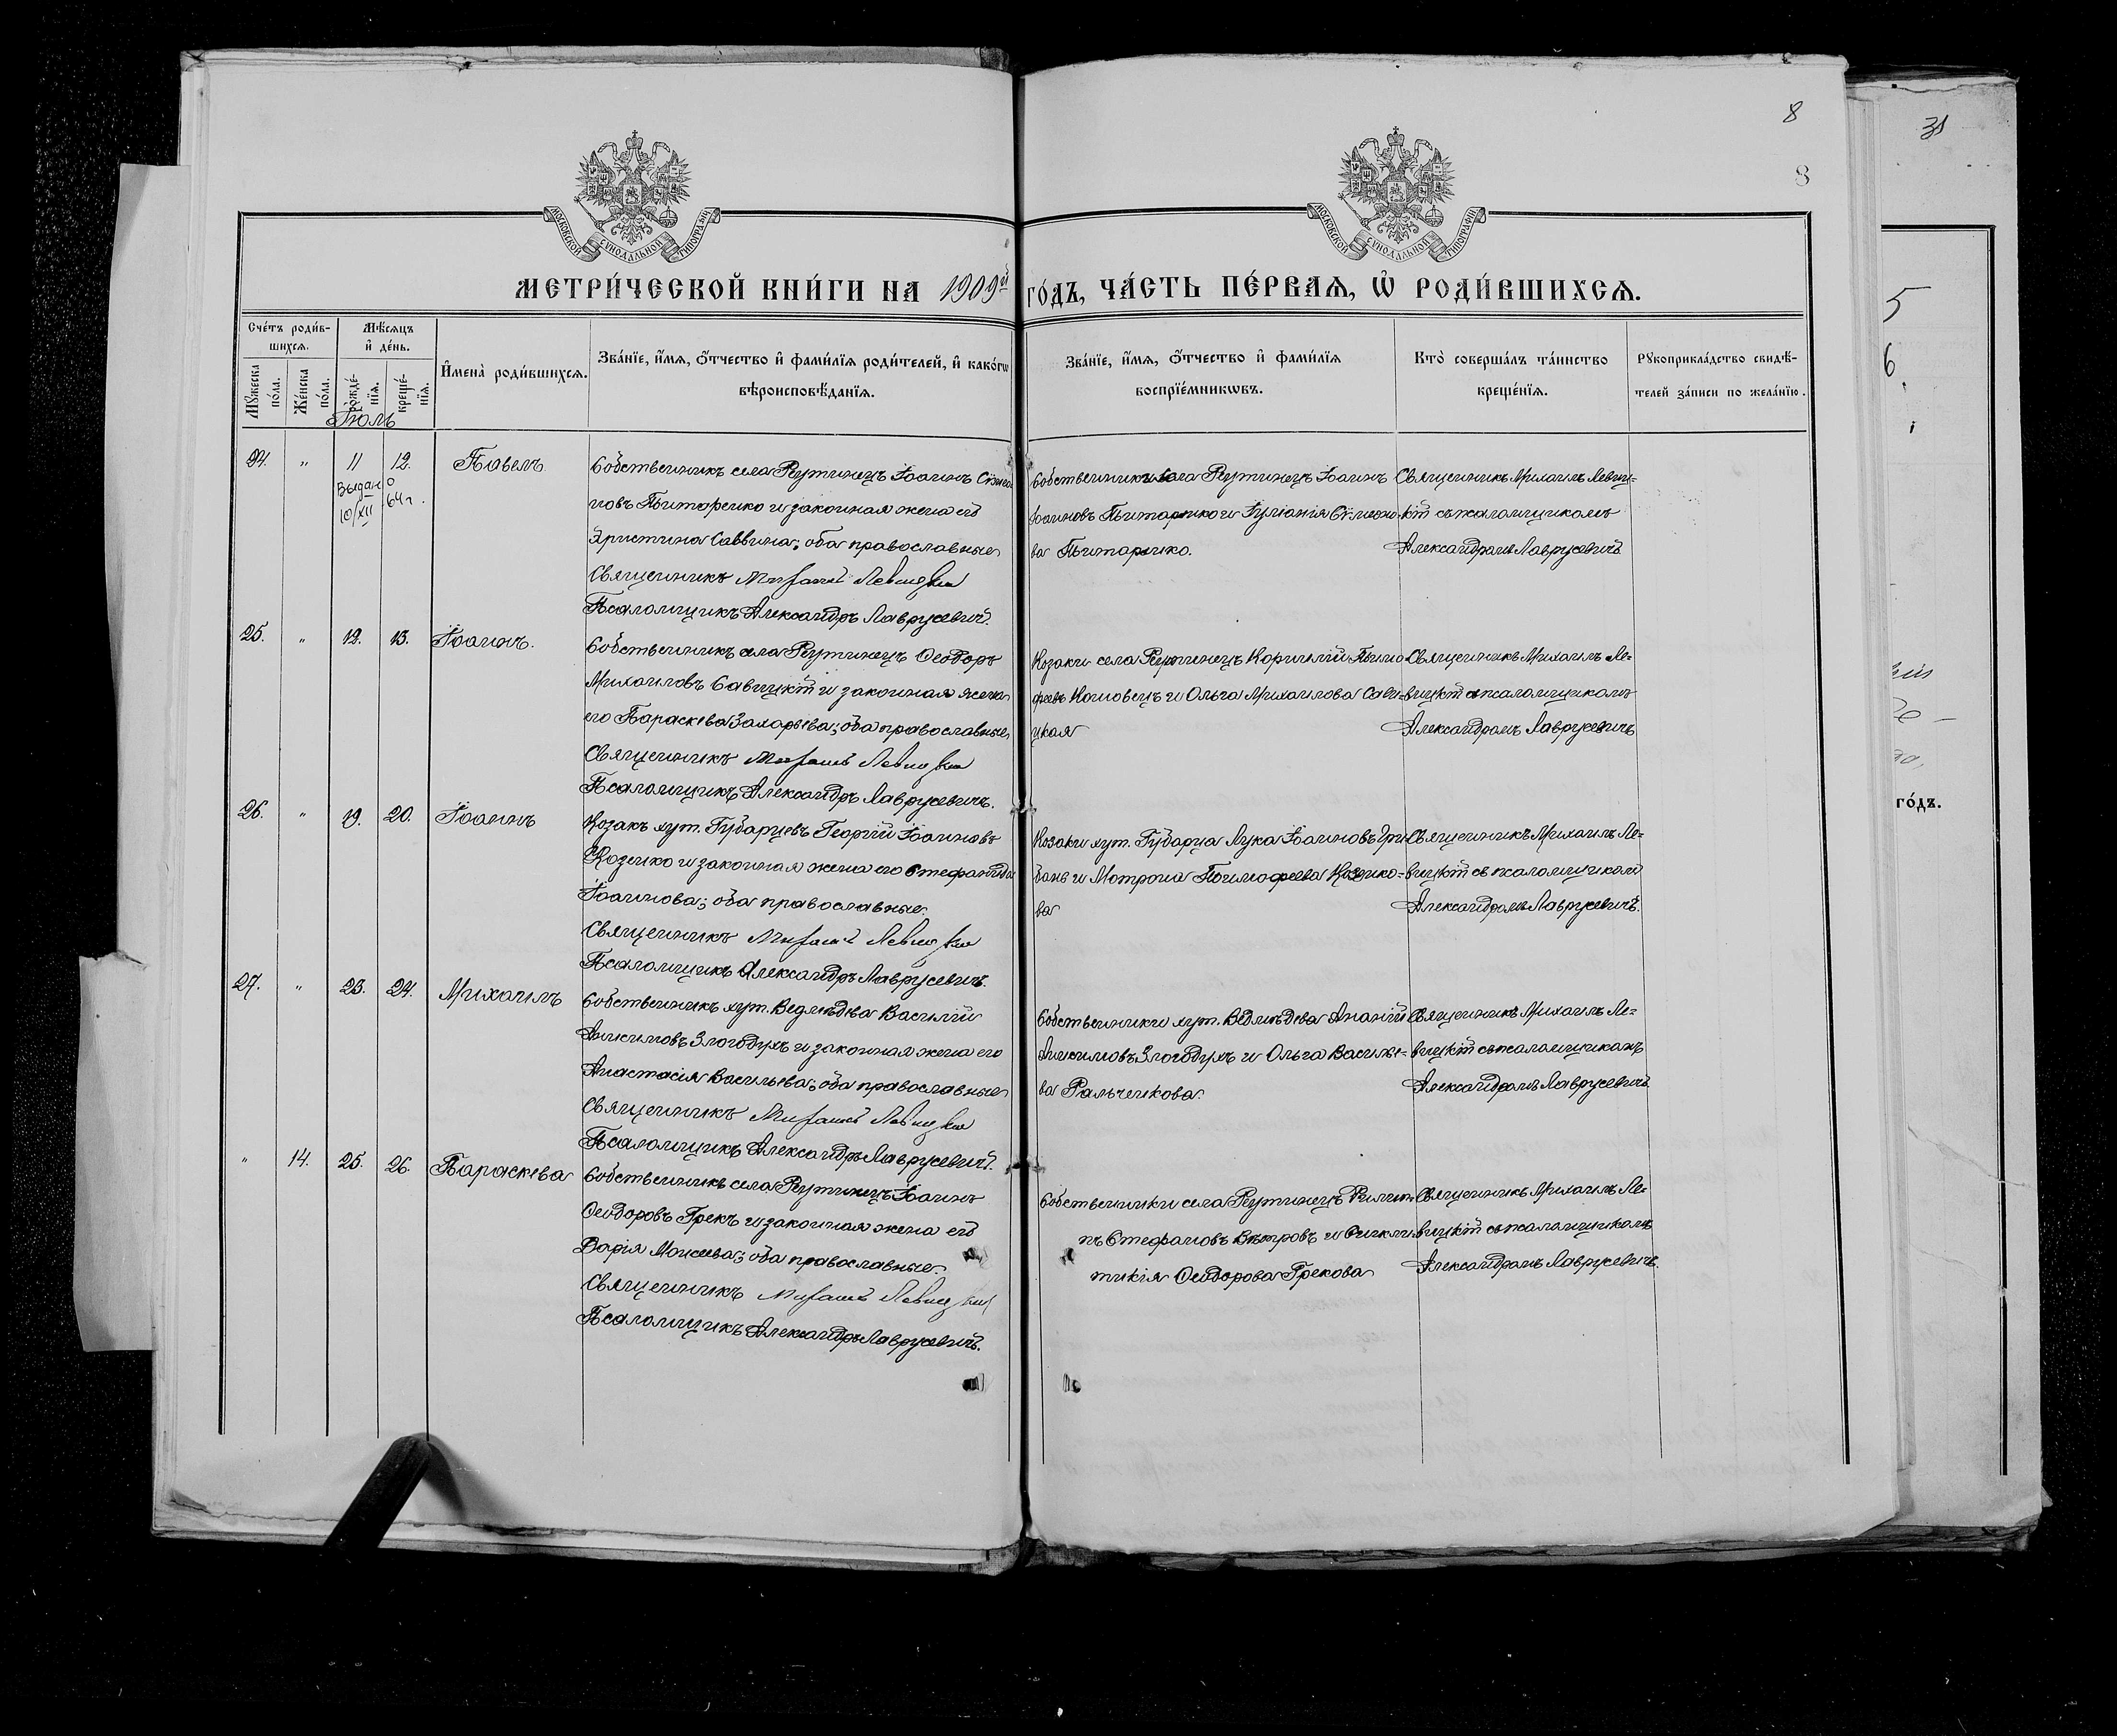 8
31
8
МОСКОВСКОЙ СУНОДАЛЬНОЙ ТИПОГРАФІИ
МОСКОВСКОЙ СУНОДАЛЬНОЙ ТИПОГРАФІИ
МЕТРИ́ЧЕСКОЙ КНИ́ГИ НА 1909й ГО́ДЪ, ЧА́СТЬ ПЕ́РВАЯ, Ѡ҆ РОДИ́ВШИХСЯ.
Сче́тъ роди́в-
шихся.
Мѣ́сяцъ
и҆ де́нь.
Мꙋ́жеска по́ла.
Же́нска по́ла.
рожде́-нїя.
креще́-нїя.
И҆мена̀ роди́вшихся.
Зва́нїе, и҆́мя, ѻ҆́тчество и҆ фами́лїя роди́телей, и҆ како́гѡ
вѣроисповѣ́данїя.
Зва́нїе, и҆́мя, ѻ҆́тчество и҆ фами́лїя
воспрїе́мникѡвъ.
Кто̀ соверша́лъ та́инство
креще́нїя.
Рꙋкоприкла́дство свидѣ́-
телей за́писи по жела́нїю.
Іюль
24. " 11 12. Павелъ
Выдано
10/XII 64г.
Собственникъ села Реутинецъ Іоаннъ Симео
новъ Пономаренко и законная жена его
Христина Саввина; оба православные
Священникъ Михаилъ Левицкій
Псаломщикъ Александръ Лаврусевичъ.
Собственники села Реутинецъ Іоаннъ
Іоанновъ и Іуліанія Симеоно
ва
Священникъ Михаилъ Левиц-
кій съ псаломщикомъ
Александромъ Лаврусевичъ
25. " 12. 13. Іоаннъ.
Собственникъ села Реутинецъ Ѳеодоръ
Михаиловъ Савицкій и законная жена
его Параскева Захарьева; оба православные
Священникъ Михаилъ Левицкій
Псаломщикъ Александръ Лаврусевичъ.
Козаки села Реутинецъ Корнилій Тимо
феевъ и Ольга Михаилова Сави-
цкая
Священникъ Михаилъ Ле-
вицкій съ псаломщикомъ
Александромъ Лаврусевичъ
26. " 19. 20. Іоаннъ
Козакъ хут. Губарцевъ Георгій Іоанновъ
Козенко и законная жена его Стефанида
Іоаннова; оба православные.
Священникъ Михаилъ Левицкій
Псаломщикъ Александръ Лаврусевичъ.
Козаки хут. Губарца Лука Іоанновъ Гри
банъ и Матрона Тимофеева Козенко-
ва
Священникъ Михаилъ Ле-
вицкій съ псаломщикомъ
Александромъ Лаврусевичъ.
27. " 23. 24. Михаилъ
Собственникъ хут. Василій
Анисимовъ Злогодухъ и законная жена его
Анастасія Васильева; оба православные
Священникъ Михаилъ Левицкій
Псаломщикъ Александръ Лаврусевичъ.
Собственники хут. Ананій
Анисимовъ Злогодухъ и Ольга Василье-
ва Ральченкова
Священникъ Михаилъ Ле-
вицкій съ псаломщикомъ
Александромъ Лаврусевичъ
" 14. 25. 26. Параскева
Собственникъ села Реутинецъ Іоаннъ
Ѳеодоровъ Грекъ и законная жена его
Дарія Моисеева; оба православные.
Священникъ Михаилъ Левицкій
Псаломщикъ Александръ Лаврусевичъ.
Собственники села Реутинецъ Филип
пъ Стефановъ Вѣтровъ и
Ѳеодорова Грекова
Священникъ Михаилъ Ле-
вицкій съ псаломщикомъ
Александромъ Лаврусевичъ.
5
6.
го́дъ.